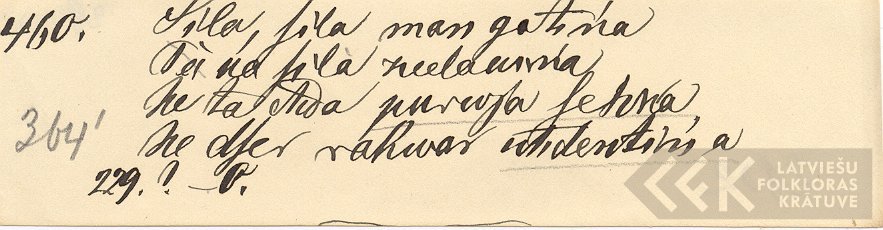 460. Sila, sila man gotiņa
Tā na sila
Ne ta ēda purwja
Ne dser wakwar uhdentiņa
364'
229. ? – 6.
LATVIEŠU
FOLKLORAS
KRĀTUVE